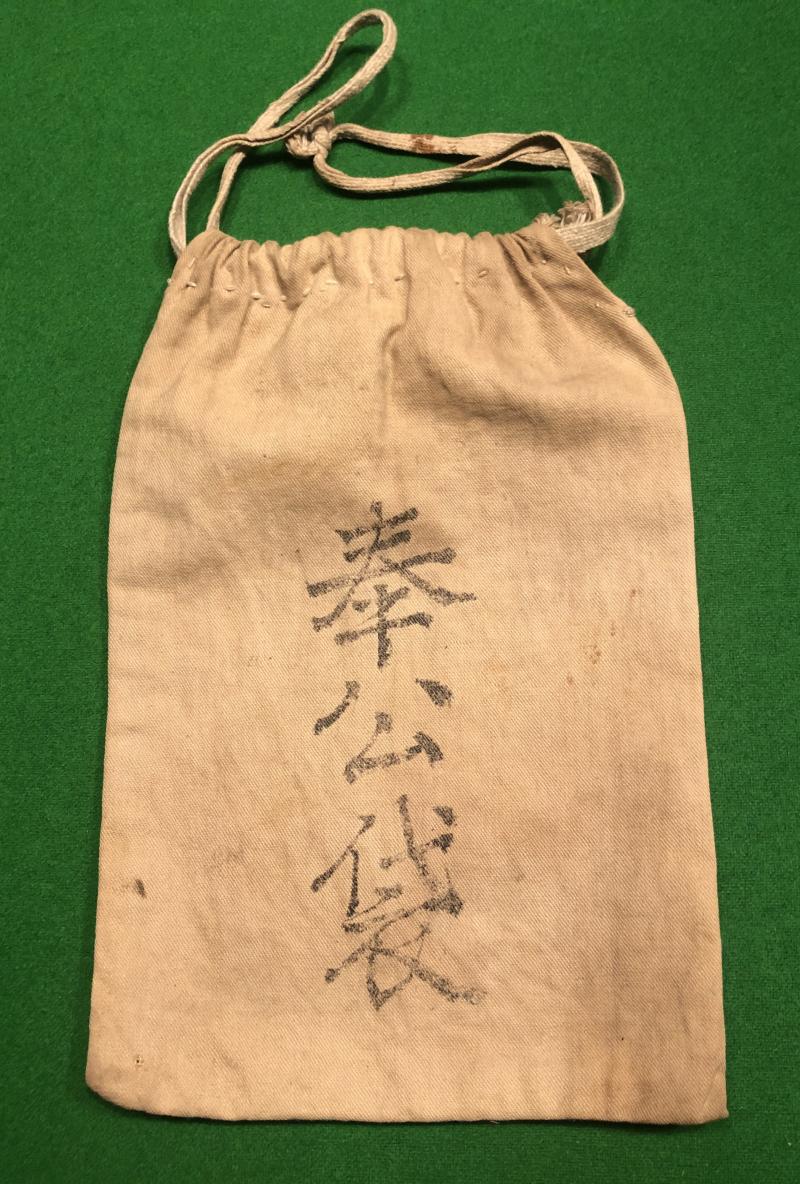 奉公袋